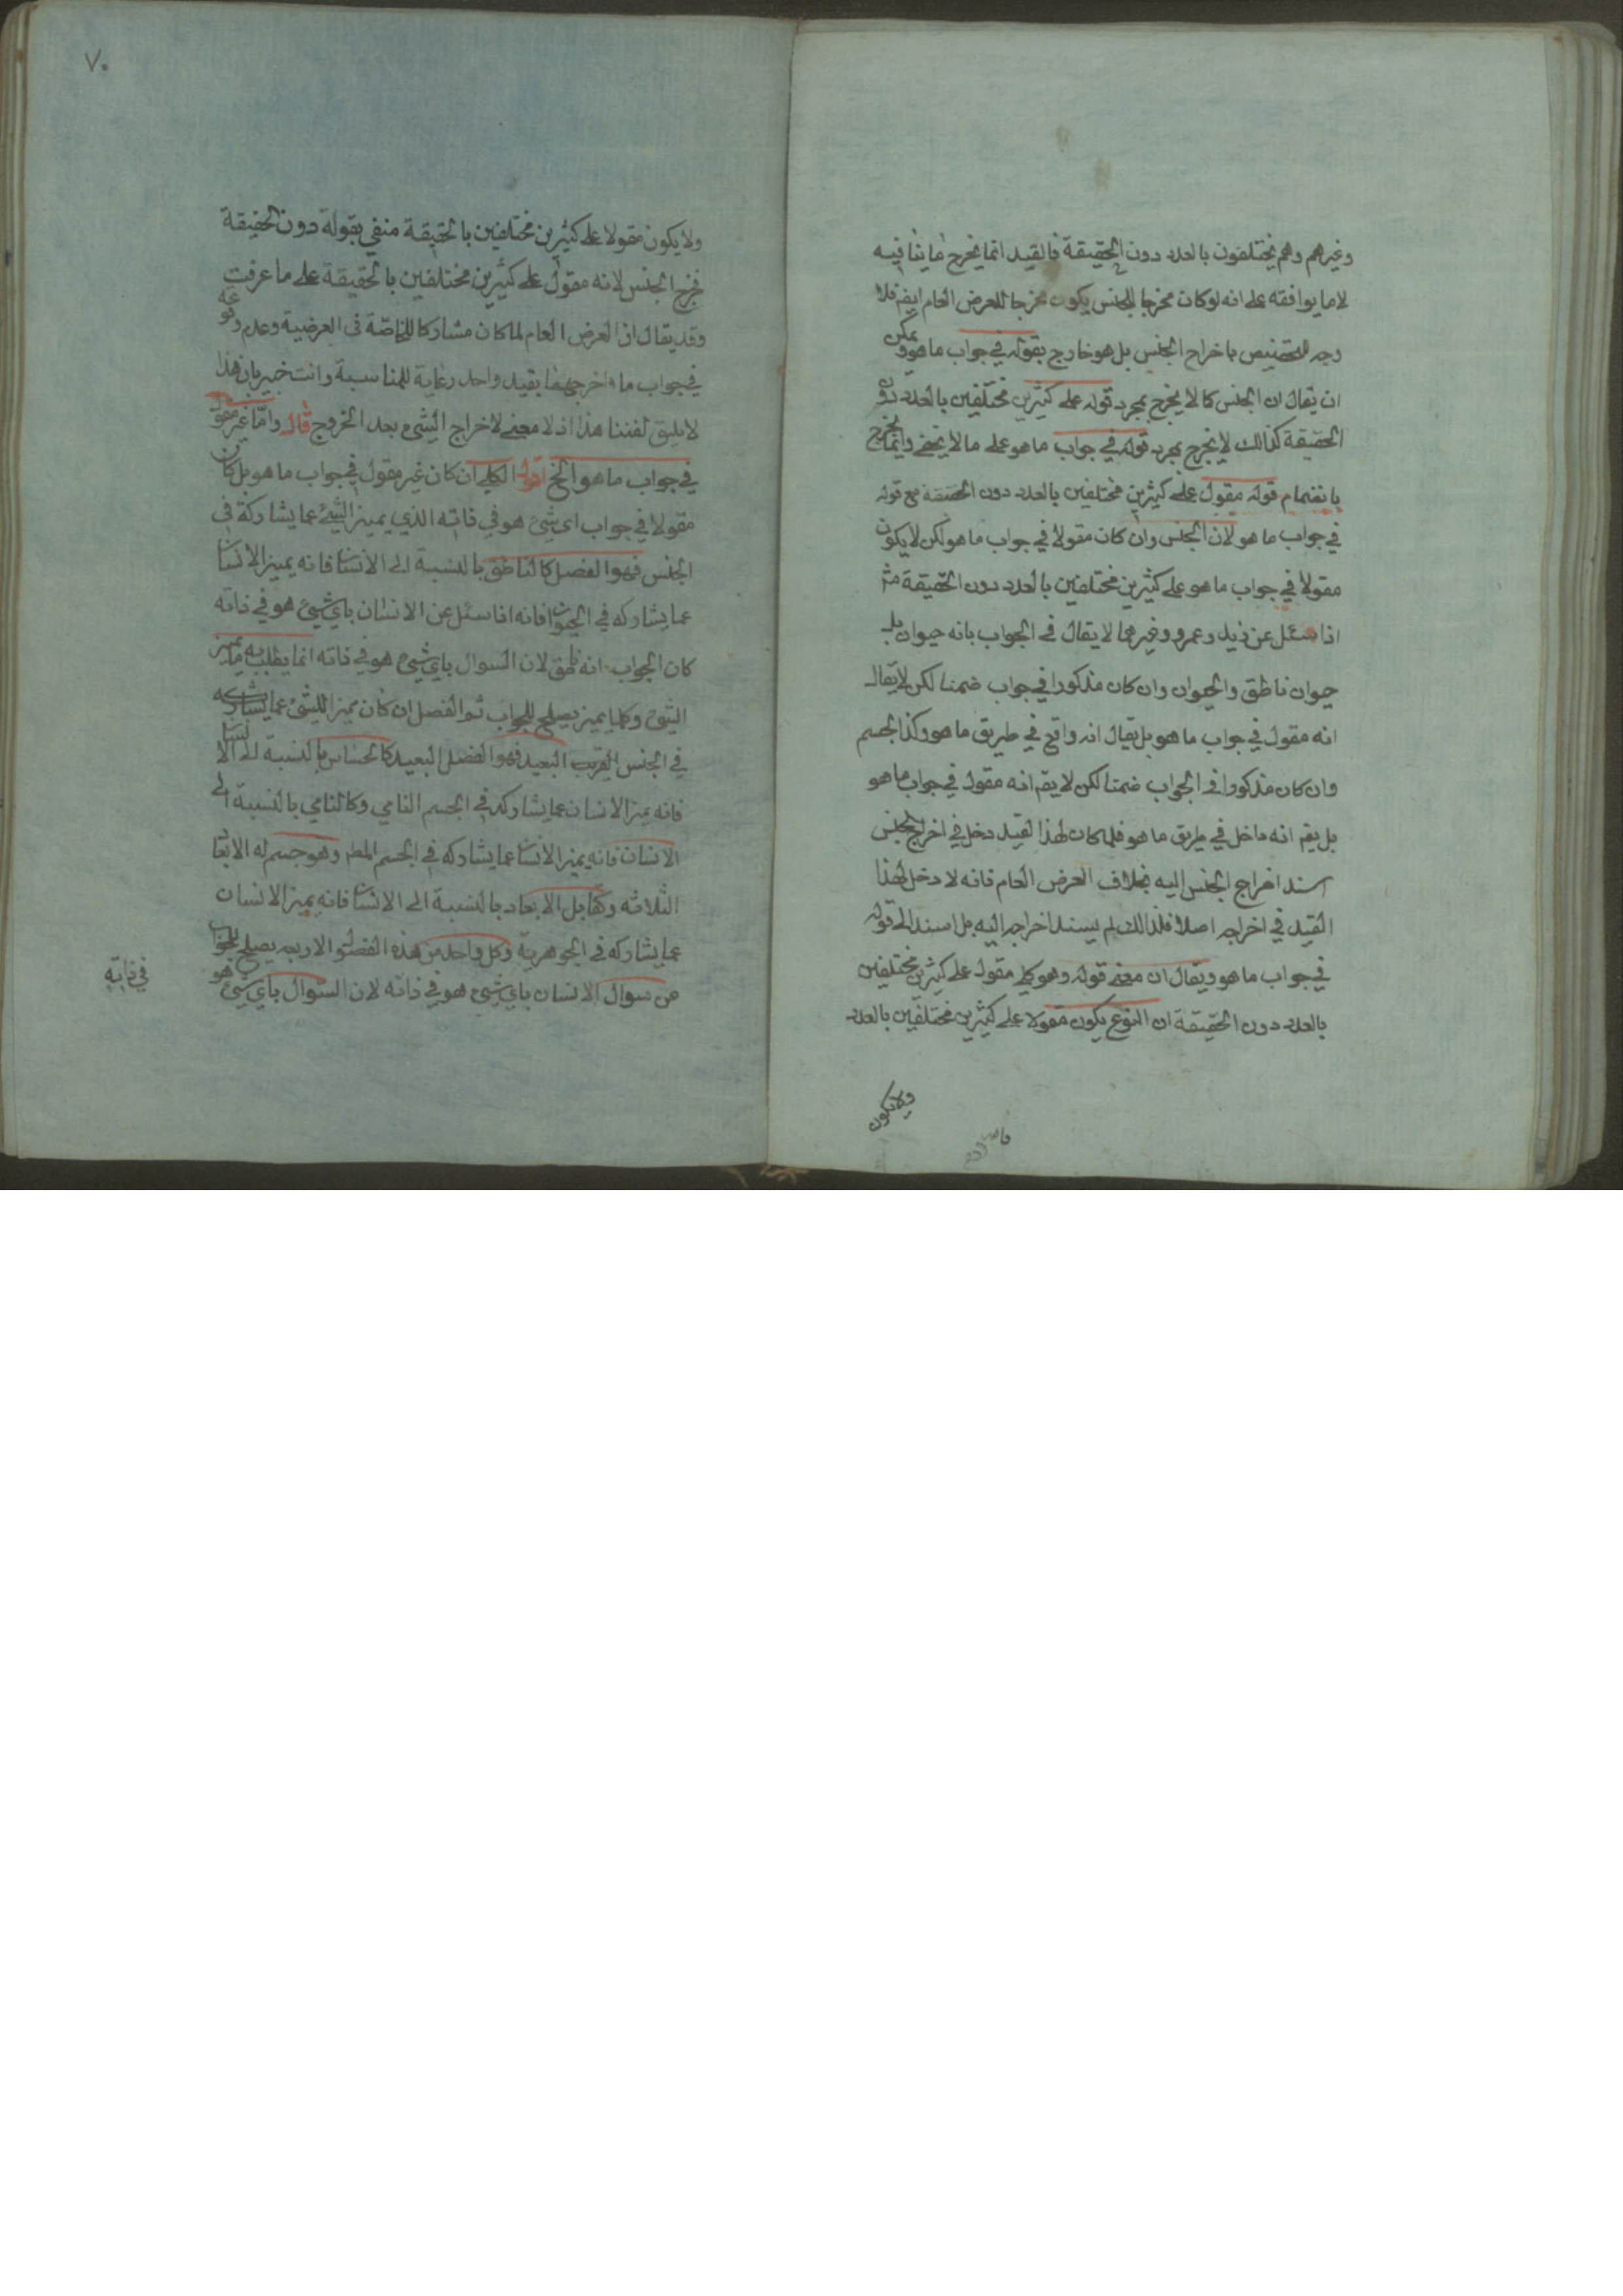 وغيرهم وهم يختلفون بالعدد دون الحقيقة فالقيد انما يخرج ما ينافيه
لا ما يوافقه على انه لو كان مخرجا للجنس يكون مخرجا للعرض العام ايضا فلا
وجه للتخصيص باخراج الجنس بل هو خارج بقوله في جواب ما هو ويمكن
ان يقال ان الجنس كما لا يخرج بمجرد قوله على كثيرين مختلفين بالعدد دون
الحقيقة كذالك لا يخرج بمجرد قوله في جواب ما هو على ما لا يخفى وانما يخرج
بانضمام قوله مقول على كثيرين مختلفين بالعدد دون الحقيقة مع قوله
في جواب ما هو لان الجنس وان كان مقولا في جواب ما هو لكن لا يكون
مقولا في جواب ما هو على كثيرين مختلفين بالعدد دون الحقيقة مثلا
اذا سئل عن زيد وعمرو وغيرهما لا يقال في الجواب بانه حيوان بل
حيوان ناطق والحيوان وان كان مذكورا في جواب ضمنا لكن لا يقال
انه مقول في جواب ما هو بل يقال انه واقع في طريق ما هو وكذا الجسم
وان كان مذكورا في الجواب ضمنا لكن لا يقم انه مقول في جواب ما هو
بل يقم انه داخل في طريق ما هو فلما كان لهذا القيد دخل في اخراج الجنس
اسند اخراج الجنس اليه بخلاف العرض العام فانه لا دخل لهذا
القيد في اخراجه اصلا فلذالك لم يسند اخراجه اليه بل اسند الى قوله
في جواب ما هو ويقال ان معنى قوله وهو كلي مقول على كثيرين مختلفين
بالعدد دون الحقيقة ان النوع يكون مقولا على كثيرين مختلفين بالعدد
ولا يكون
٧٠
ولا يكون مقولا على كثيرين مختلفين بالحقيقة منفي بقوله دون الحقيقة
فخرج الجنس لانه مقول على كثيرين مختلفين بالحقيقة على ما عرفت
وقد يقال ان العرض العام لما كان مشاركا للخاصة في العرضية وعدم وقوعه
في جواب ما اخرجهما بقيد واحد رعاية للمناسبة وانت خبير بان هذا
لا يليق لفننا هذا اذ لا معنى لاخراج الشيء بعد الخروج قال واما غير مقول
في جواب ما هو الخ اقول الكلي ان كان غير مقول في جواب ما هو بل كان
مقولا في جواب اي شيء هو في ذاته الذي يميز الشيء عما يشاركه في
الجنس فهو الفصل كالناطق بالنسبة الى الانسان فانه يميز الانسان
عما يشاركه في الحيوان فانه اذا سئل عن الانسان باي شيء هو في ذاته
كان الجواب انه ناطق لان السوال باي شيء هو في ذاته انما يطلب به ما يميز
الشيء وكلما يميز يصلح للجواب ثم الفصل ان كان مميزا للشيء عما يشاركه
في الجنس القريب البعيد فهو الفصل البعيد كالحساس بالنسبة الى الانسان
فانه يميز الانسان عما يشاركه في الجسم النامي وكالنامي بالنسبة الى
الانسان فانه يميز الانسان عما يشاركه في الجسم المط وهو جسم له الابعاد
الثلاثه وكقابل الابعاد بالنسبة الى الانسان فانه يميز الانسان
عما يشاركه في الجوهرية وكل واحد من هذه الفصول الاربعه يصلح للجواب
من سوال الانسان باي شيء هو في ذاته لان السوال باي شيء هو
في ذاته